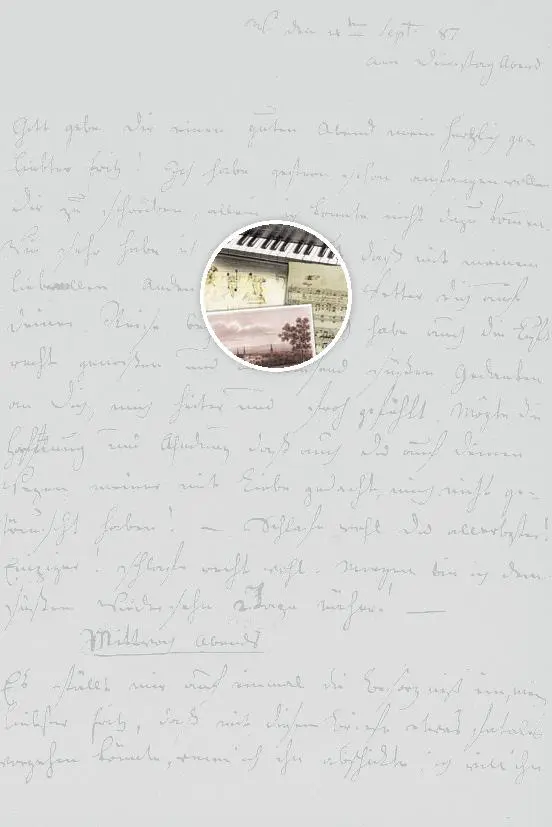 den 18ten Sept. 87
am Dienstag Abend
Gott gebe Dir einen guten Abend mein herzlich ge-
liebter Fritz! Ich habe gestern schon anfangen wollen
Dir zu schreiben, allein ich konnte nicht dazu kommen.
Wie sehr habe ich daß mit meinem
Anden Wetter Dich auf
Deiner Reise habe auch die Luft
recht genossen und süßen Gedanken
an Dich, mich heiter und gefühlt. Möchte die
Hoffnung und Ahndung daß auch Du auf Deinen
Wegen meiner mit Liebe gedacht, mich nicht ge-
täuscht haben! — Schlafe wohl Du allerbester!
Einziger! schlafe recht wohl. Morgen bin ich dem
süßen Wiedersehn 2 Tage näher! —
Mittwoch Abends
Es fällt mir auch einmal die Besorgniß ein, mein
liebster Fritz, daß mit diesem Briefe etwas fatales
vorgehen könnte, wenn ich ihn abschickte, ich will ihn